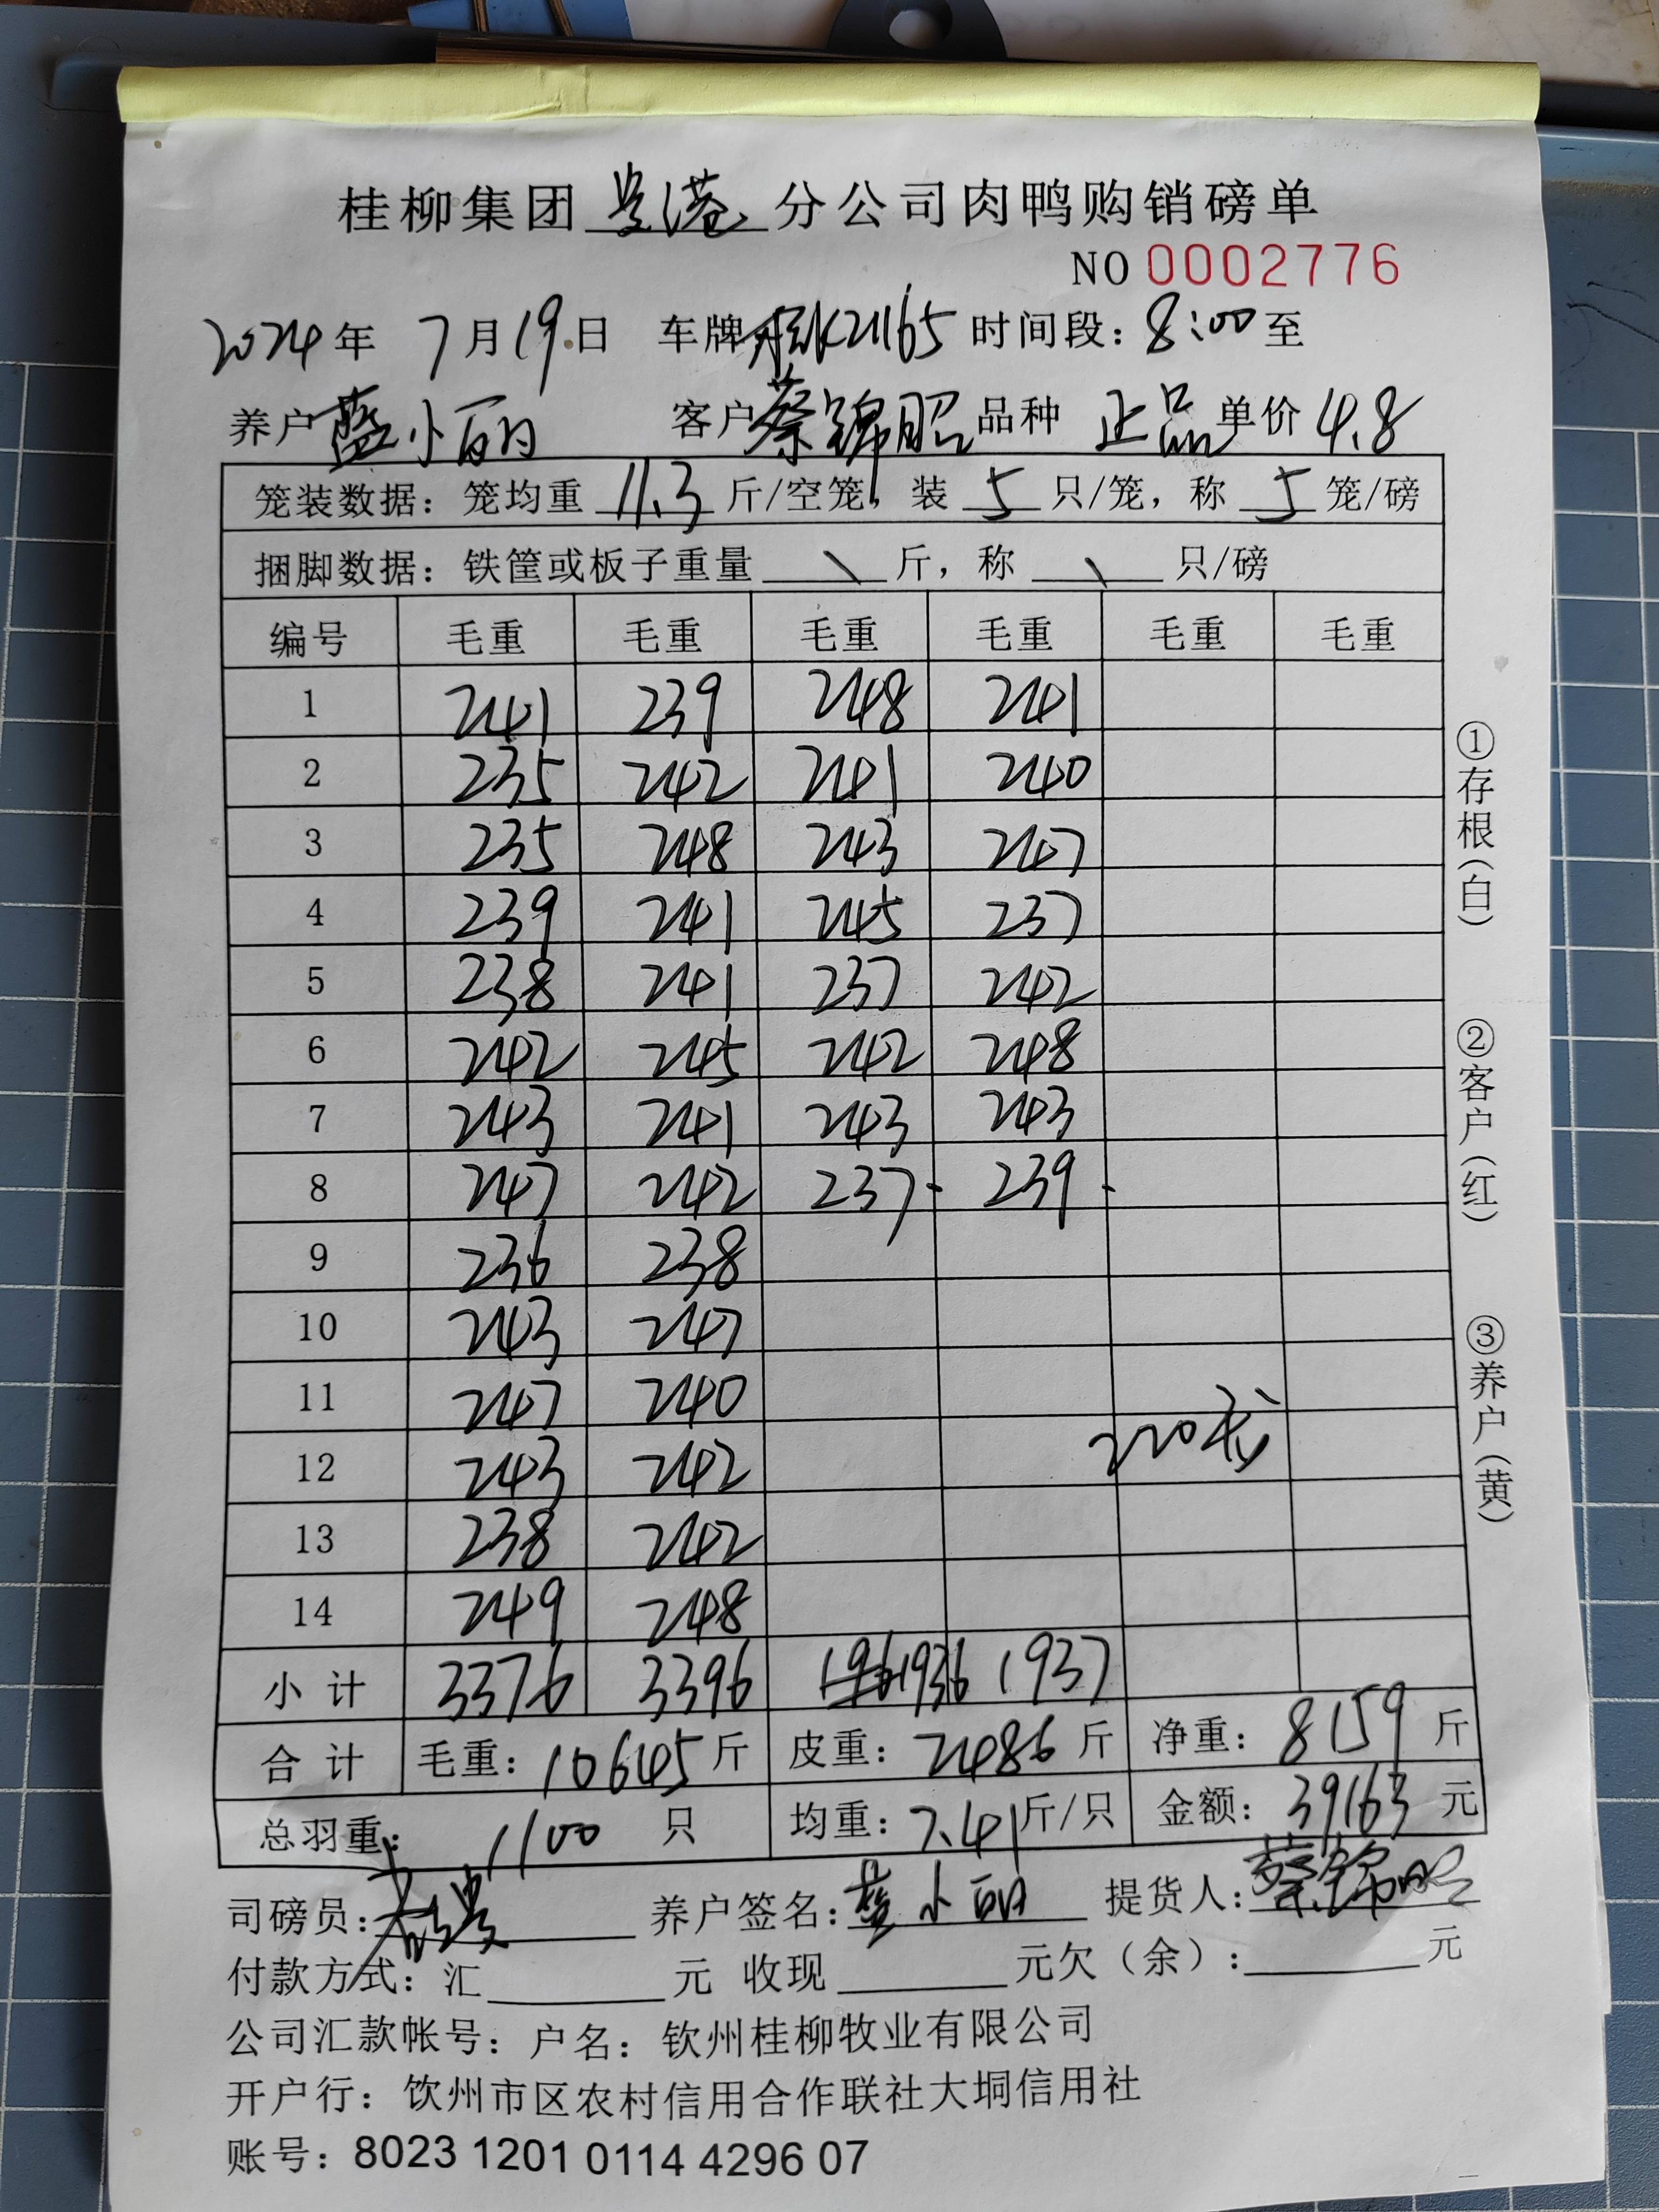 桂柳集团贵港分公司肉鸭购销磅单
NO 0002776
2024年 7月19日 车牌 K21165 时间段：8:00至
养户 蓝小丽 客户 蔡锦昭 品种 正品 单价 4.8
笼装数据：笼均重 11.3 斤/空笼，装 5 只/笼，称 5 笼/磅
捆脚数据：铁筐或板子重量 \ 斤，称 \ 只/磅
编号 毛重 毛重 毛重 毛重 毛重 毛重
1 241 239 248 241
2 235 242 241 240
3 235 248 243 247
4 239 241 245 237
5 238 241 237 242
6 242 245 242 248
7 243 241 243 243
8 247 242 237 239
9 236 238
10 243 247
11 247 240
12 243 242
220
13 238 242
14 249 248
小计 3376 3396 1936 1937
合计 毛重：10645斤 皮重：2486斤 净重：8159斤
总羽重：1100 只 均重：7.41斤/只 金额：39163元
司磅员： 养户签名：蓝小丽 提货人：蔡锦昭
付款方式：汇 元 收现 元欠（余）： 元
公司汇款帐号：户名：钦州桂柳牧业有限公司
开户行：钦州市区农村信用合作联社大垌信用社
账号：8023 1201 0114 4296 07
①存根（白）
②客户（红）
③养户（黄）